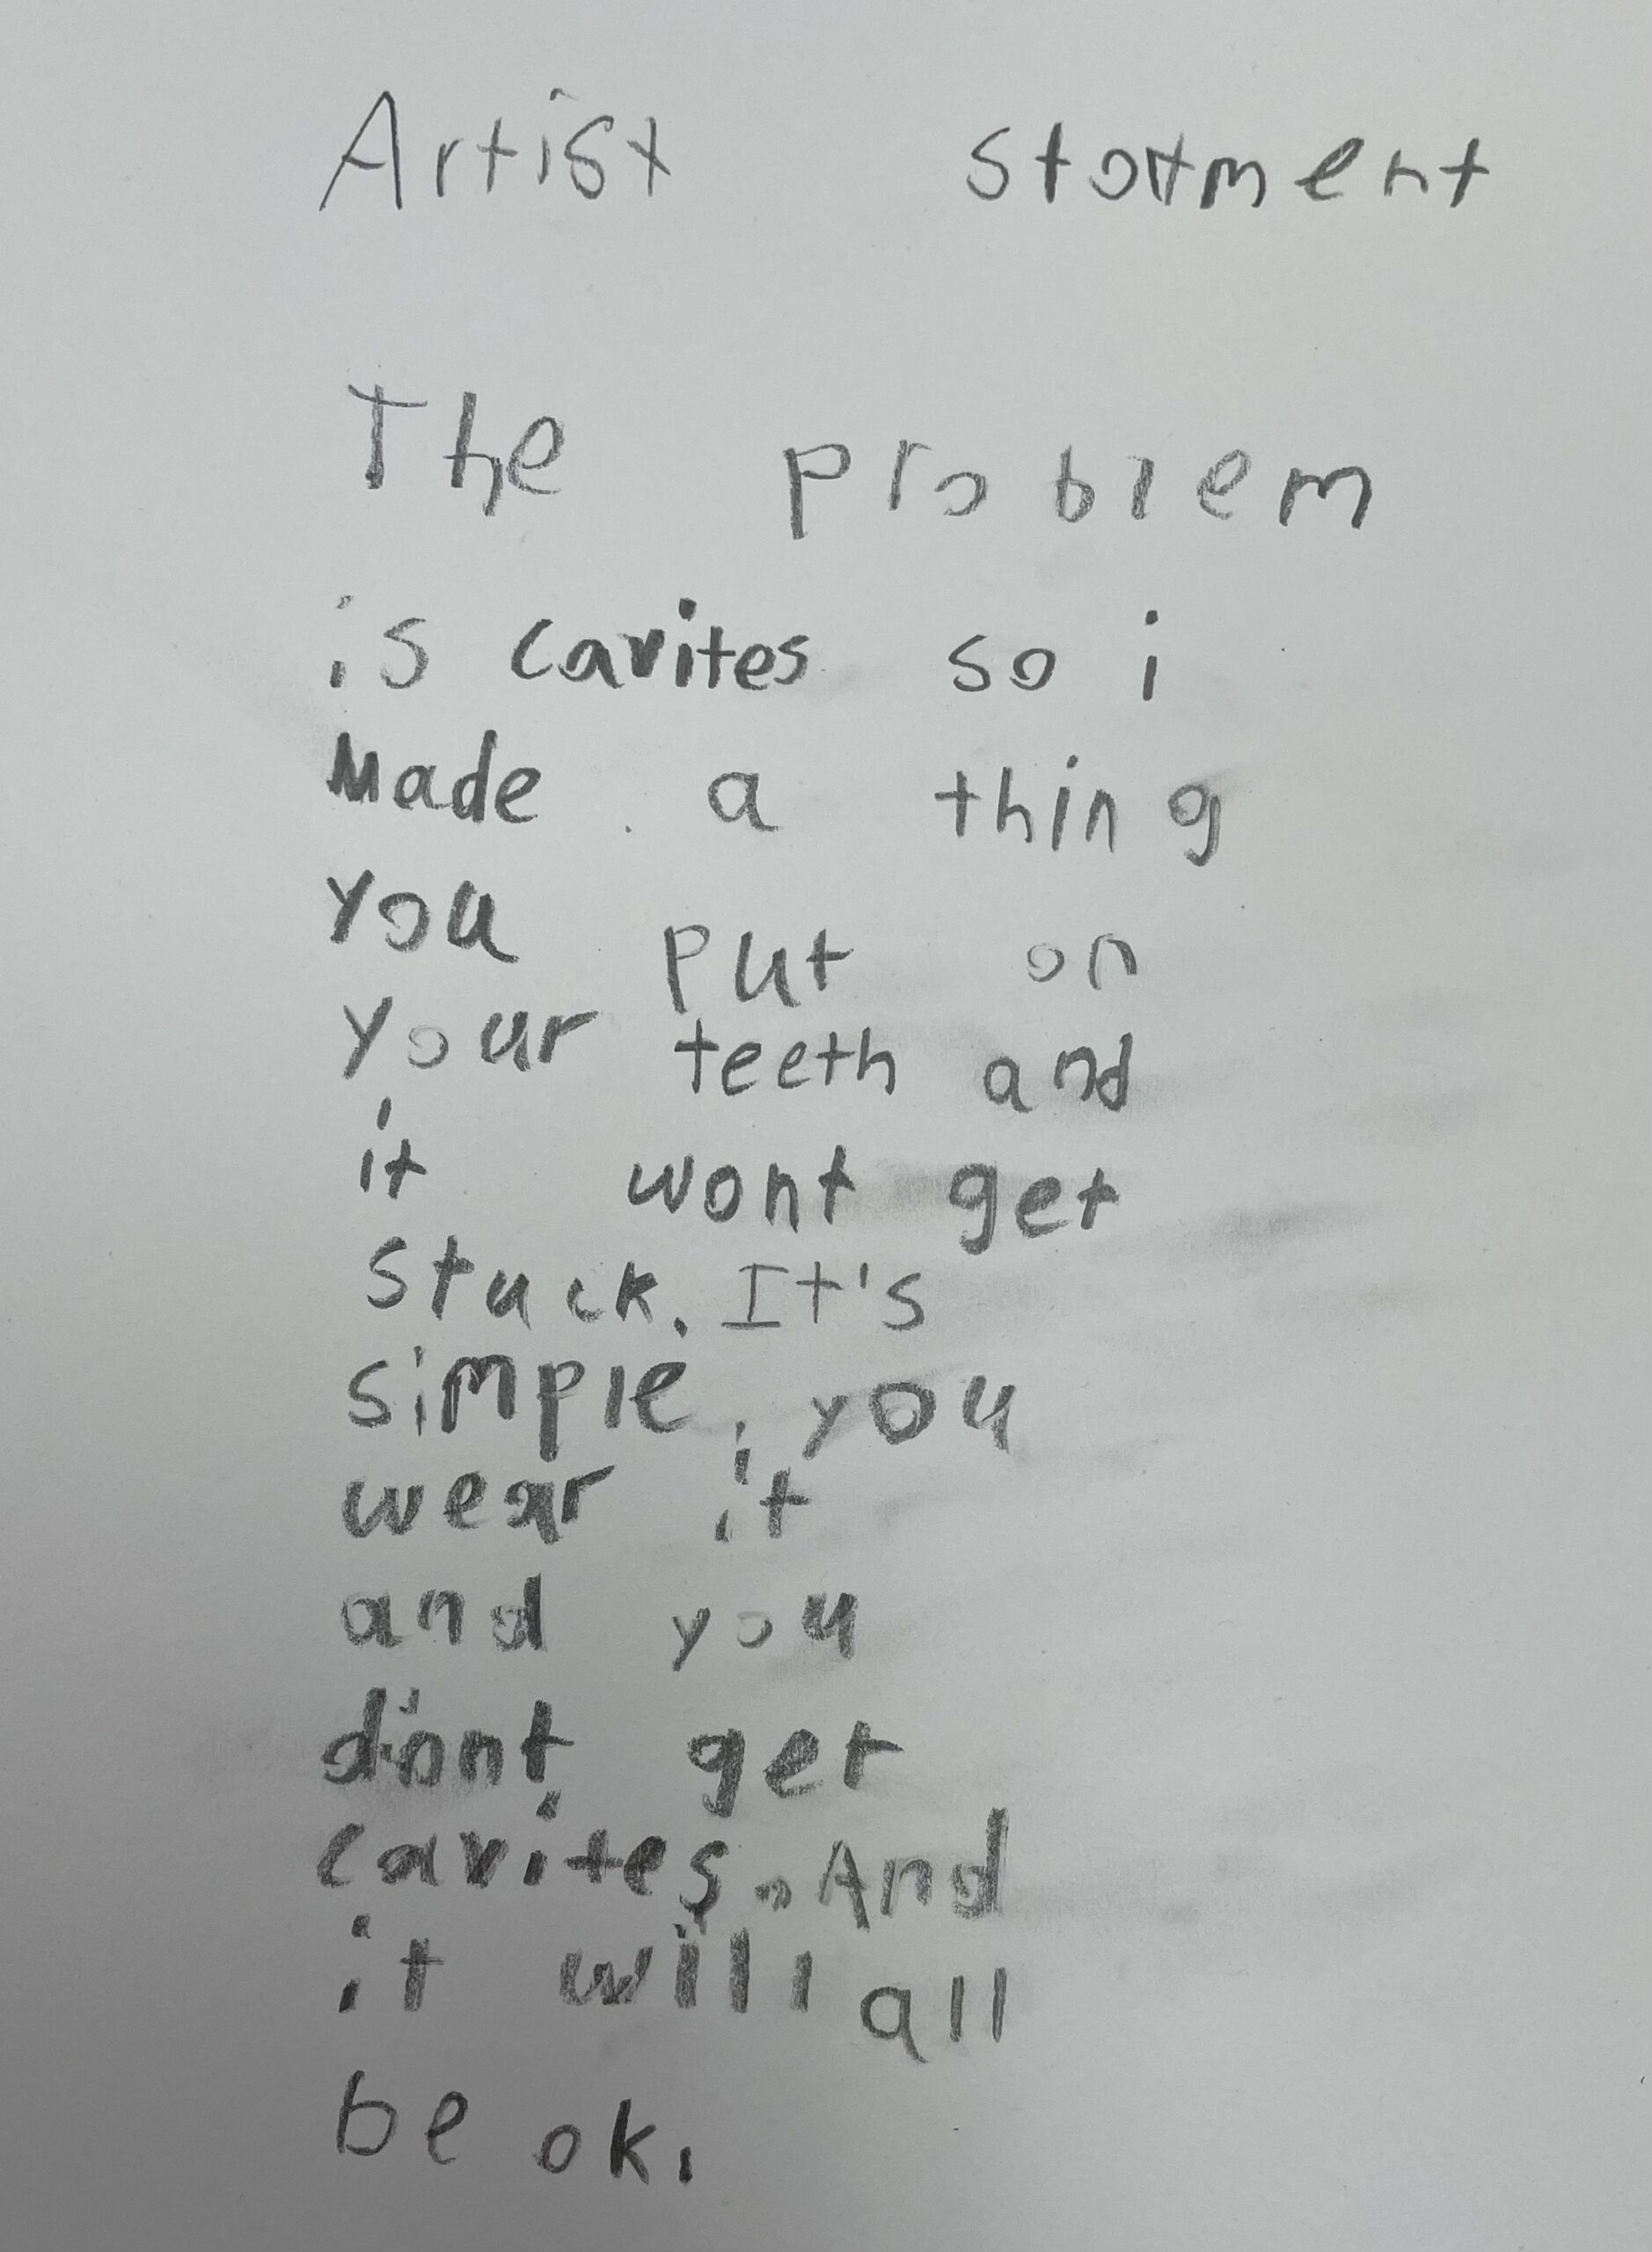 Artist statment
The problem
is cavites so i
Made a thing
you put on
your teeth and
it wont get
stuck. It's
simple, you
wear it
and you
dont get
cavites. And
it will all
be ok.